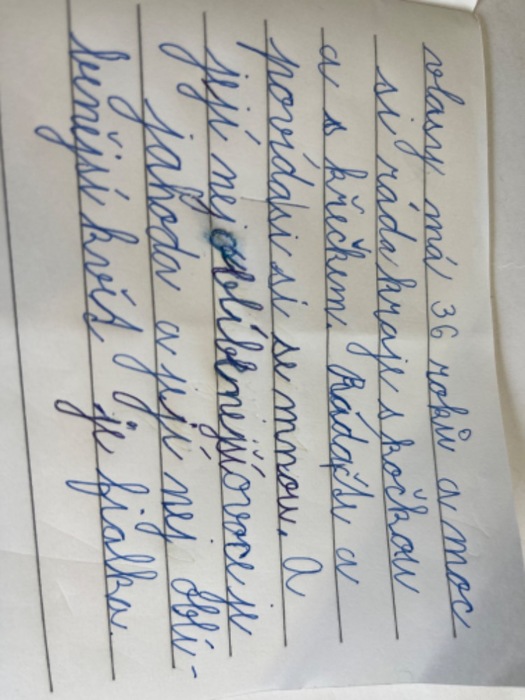 vlasy má 36 roků a moc
si ráda hraje s kočkou
a s křečkem. Ráda a
povídaki si se mnou. A
její nej oblíbenejší ovoce je
jahoda a její nej oblí-
benější květ je fialka.